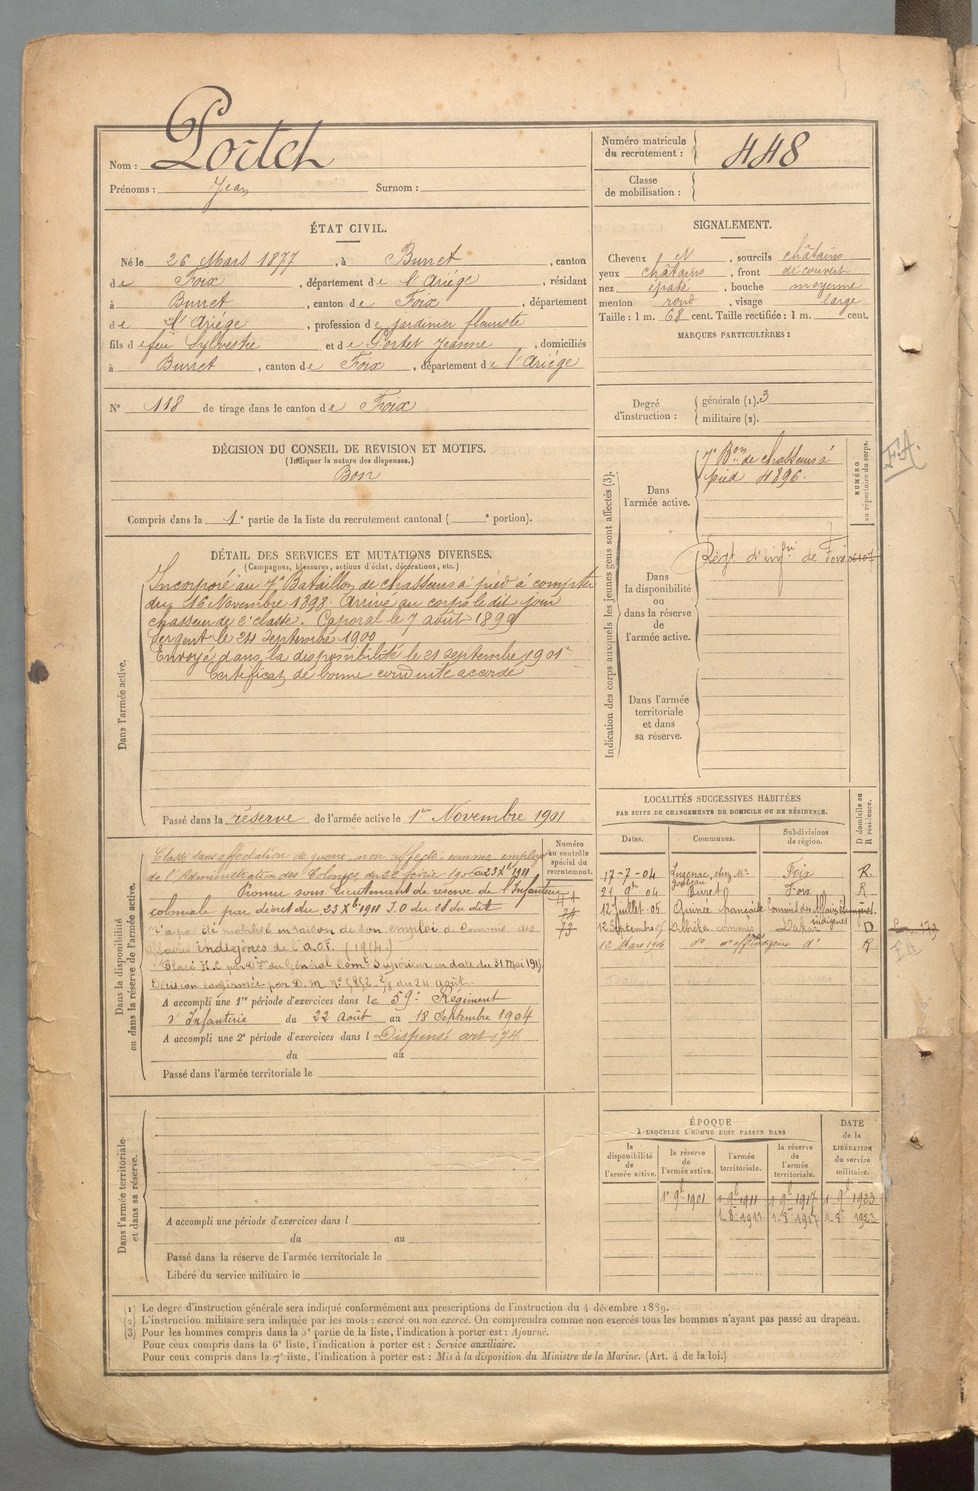 Nom : Portet
Prénoms : Jean Surnom :
Numéro matricule du recrutement : 448
Classe de mobilisation :
ÉTAT CIVIL.
Né le 26 Mars 1877, à Burret, canton
de Foix, département de l'Ariége, résidant
à Burret, canton de Foix, département
de l'Ariége, profession de jardinier fleuriste
fils de feu Sylvestre et de Portet Jeanne, domiciliés
à Burret, canton de Foix, département de l'Ariége
N° 118 de tirage dans le canton de Foix
SIGNALEMENT.
Cheveux et, sourcils châtains
yeux châtains, front découvert
nez épaté, bouche moyenne
menton rond, visage large
Taille : 1 m. 68 cent. Taille rectifiée : 1 m. cent.
MARQUES PARTICULIÈRES :
Degré d'instruction : générale (1). 3
militaire (2).
DÉCISION DU CONSEIL DE REVISION ET MOTIFS.
(Indiquer la nature des dispenses.)
Bon
Compris dans la 1e partie de la liste du recrutement cantonal ( e portion).
DÉTAIL DES SERVICES ET MUTATIONS DIVERSES.
(Campagnes, blessures, actions d'éclat, décorations, etc.)
Dans l'armée active.
Incorporé au 7e Bataillon de chasseurs à pied à compter
du 16 Novembre 1898. Arrivé au corps le dit jour
chasseur de 2e classe. Caporal le 7 août 1899
Sergent le 21 Septembre 1900
Envoyé dans la disponibilité le 21 septembre 1901
Certificat de bonne conduite accordé
Passé dans la réserve de l'armée active le 1er Novembre 1901
Indication des corps auxquels les jeunes gens sont affectés (3).
NUMÉRO au répertoire du corps.
Dans l'armée active.
7e Bon de chasseurs à
pied 4896.
F.A.
Dans la disponibilité ou dans la réserve de l'armée active.
Régt d'infrie de Foix
Dans l'armée territoriale et dans sa réserve.
Dans la disponibilité ou dans la réserve de l'armée active.
Numéro au contrôle spécial du recrutement.
Classé sans affectation de guerre, non affecté comme employé
de l'Administration des Colonies du 22 février 1906 au 23 Xbre 1911
Promu sous lieutenant de réserve de l'Infanterie
coloniale par décret du 23 Xbre 1911 J.O du 28 du dit
N'a pas été mobilisé en raison de son emploi de Commis des
affaires indigènes de l'A.O.F. (1914)
Placé H.C. par Don du Général Comt Supérieur en date du 31 Mai 1915
Décision confirmée par D.M. du 24 août.
A accompli une 1re période d'exercices dans le 59e Régiment
d'Infanterie du 22 Août au 18 Septembre 1904
A accompli une 2e période d'exercices dans l Dispensé
du au
Passé dans l'armée territoriale le
74
73
LOCALITÉS SUCCESSIVES HABITÉES
PAR SUITE DE CHANGEMENTS DE DOMICILE OU DE RÉSIDENCE.
Dates. Communes. Subdivisions de région. D domicile ou R résidence.
17-7-04 Luzenac, chez Mr Foix R.
21 9bre 04 Burret Foix R
12 Juillet 05 Guinée française
12 Septembre 05 Dakar D
12 Mars 1906 do do R
Dans l'armée territoriale et dans sa réserve.
A accompli une période d'exercices dans l
du au
Passé dans la réserve de l'armée territoriale le
Libéré du service militaire le
ÉPOQUE
À LAQUELLE L'HOMME DOIT PASSER DANS
la disponibilité de l'armée active. la réserve de l'armée active. l'armée territoriale. la réserve de l'armée territoriale. DATE de la LIBÉRATION du service militaire.
1er 9bre 1901 1 9bre 1911 1 9bre 1917 1 9bre 1923
1. 8bre 1911 1. 8bre 1917 1. 8bre 1923
(1) Le degré d'instruction générale sera indiqué conformément aux prescriptions de l'instruction du 4 décembre 1889.
(2) L'instruction militaire sera indiquée par les mots : exercé ou non exercé. On comprendra comme non exercés tous les hommes n'ayant pas passé au drapeau.
(3) Pour les hommes compris dans la 5e partie de la liste, l'indication à porter est : Ajourné.
Pour ceux compris dans la 6e liste, l'indication à porter est : Service auxiliaire.
Pour ceux compris dans la 7e liste, l'indication à porter est : Mis à la disposition du Ministre de la Marine. (Art. 4 de la loi.)